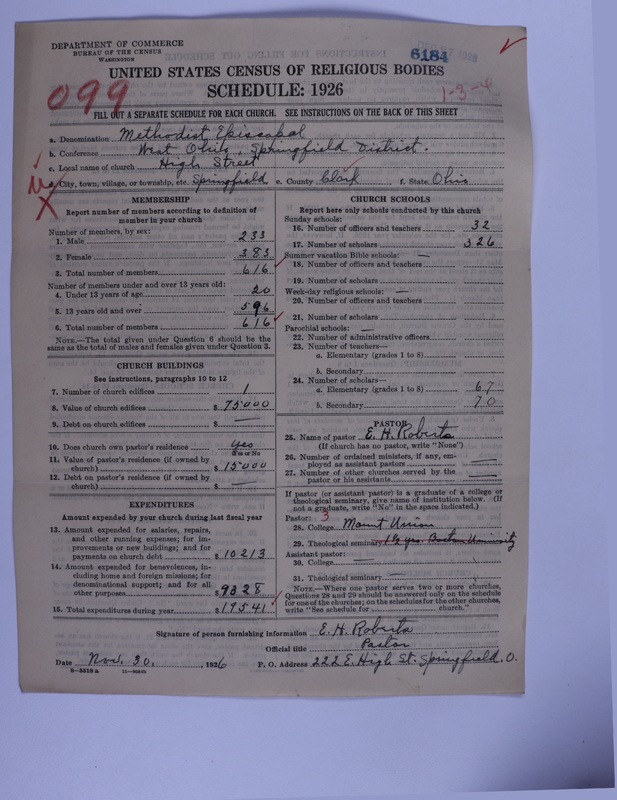 DEPARTMENT OF COMMERCE
BUREAU OF THE CENSUS
WASHINGTON
6184
1-3-4
UNITED STATES CENSUS OF RELIGIOUS BODIES
SCHEDULE: 1926
099
FILL OUT A SEPARATE SCHEDULE FOR EACH CHURCH. SEE INSTRUCTIONS ON THE BACK OF THIS SHEET
a. Denomination Methodist Episcopal
b. Conference West Ohio, Springfield District.
c. Local name of church High Street
d. City, town, village, or township, etc. Springfield e. County Clark f. State Ohio
MEMBERSHIP
Report number of members according to definition of member in your church
Number of members, by sex:
1. Male 233
2. Female 383
3. Total number of members 616
Number of members under and over 13 years old:
4. Under 13 years of age 20
5. 13 years old and over 596
6. Total number of members 616
NOTE.—The total given under Question 6 should be the same as the total of males and females given under Question 3.
CHURCH BUILDINGS
See instructions, paragraphs 10 to 12
7. Number of church edifices 1
8. Value of church edifices $ 75000
9. Debt on church edifices $ —
10. Does church own pastor's residence Yes
Yes or No
11. Value of pastor's residence (if owned by church) $ 15000
12. Debt on pastor's residence (if owned by church) $ —
EXPENDITURES
Amount expended by your church during last fiscal year
13. Amount expended for salaries, repairs, and other running expenses; for improvements or new buildings; and for payments on church debt $ 10213
14. Amount expended for benevolences, including home and foreign missions; for denominational support; and for all other purposes $ 9328
15. Total expenditures during year $ 19541
CHURCH SCHOOLS
Report here only schools conducted by this church
Sunday schools:
16. Number of officers and teachers 32
17. Number of scholars 326
Summer vacation Bible schools: —
18. Number of officers and teachers
19. Number of scholars
Week-day religious schools: —
20. Number of officers and teachers
21. Number of scholars
Parochial schools: —
22. Number of administrative officers
23. Number of teachers—
a. Elementary (grades 1 to 8)
b. Secondary
24. Number of scholars—
a. Elementary (grades 1 to 8) 67
b. Secondary 70
PASTOR
25. Name of pastor E. H. Roberts
(If church has no pastor, write "None")
26. Number of ordained ministers, if any, employed as assistant pastors —
27. Number of other churches served by the pastor or his assistants —
If pastor (or assistant pastor) is a graduate of a college or theological seminary, give name of institution below. (If not a graduate, write "No" in the space indicated.)
Pastor: 3
28. College Mount Union
29. Theological seminary 1½ yrs. Boston University
Assistant pastor:
30. College —
31. Theological seminary —
NOTE.—Where one pastor serves two or more churches, Questions 28 and 29 should be answered only on the schedule for one of the churches; on the schedules for the other churches, write "See schedule for church."
Signature of person furnishing information E. H. Roberts
Official title Pastor
Date Nov. 30, 1926 P. O. Address 222 E. High St. Springfield, O.
8-5318 a